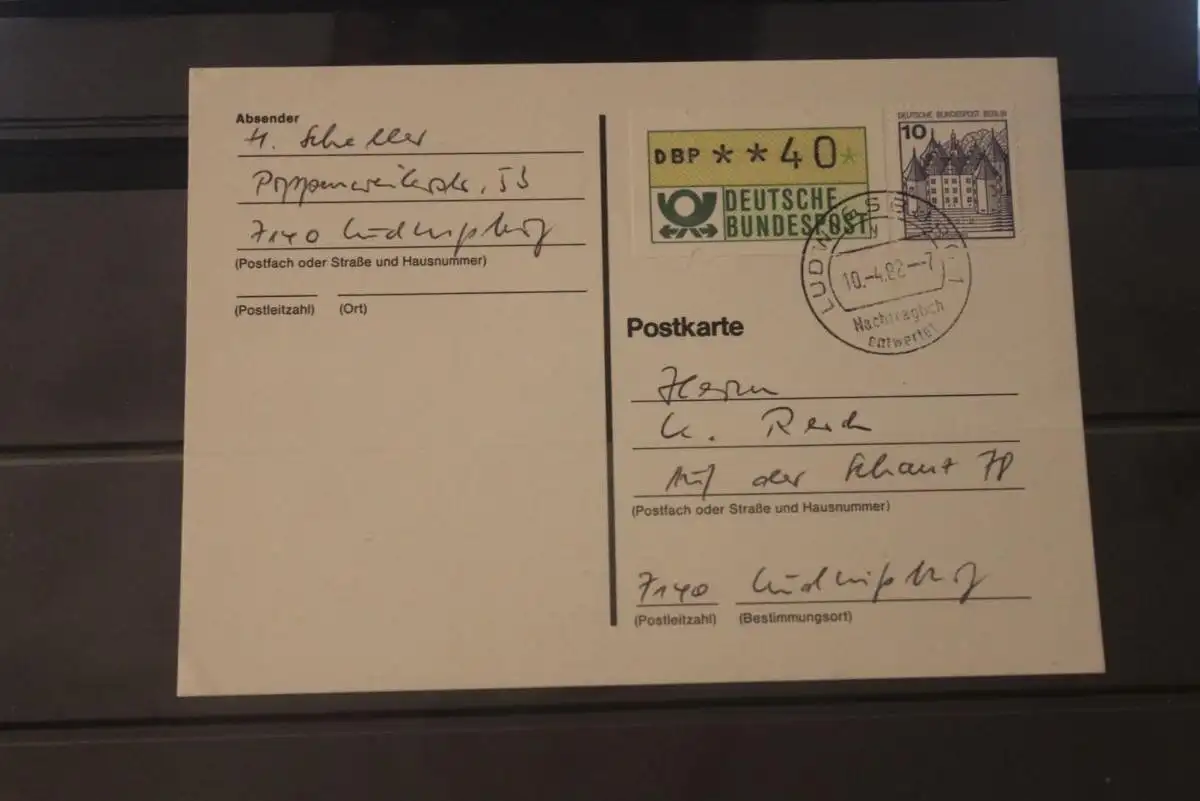 Absender
H. Scheller
Poppenweilerstr. 53
7140 Ludwigsburg
(Postfach oder Straße und Hausnummer)
(Postleitzahl) (Ort)
DBP **40*
DEUTSCHE
BUNDESPOST
DEUTSCHE BUNDESPOST BERLIN
10
LUDWIGSBURG 1
10.-4.82--7
Nachträglich
entwertet
Postkarte
Herrn
K. Reich
Auf der Schanz 70
(Postfach oder Straße und Hausnummer)
7140 Ludwigsburg
(Postleitzahl) (Bestimmungsort)